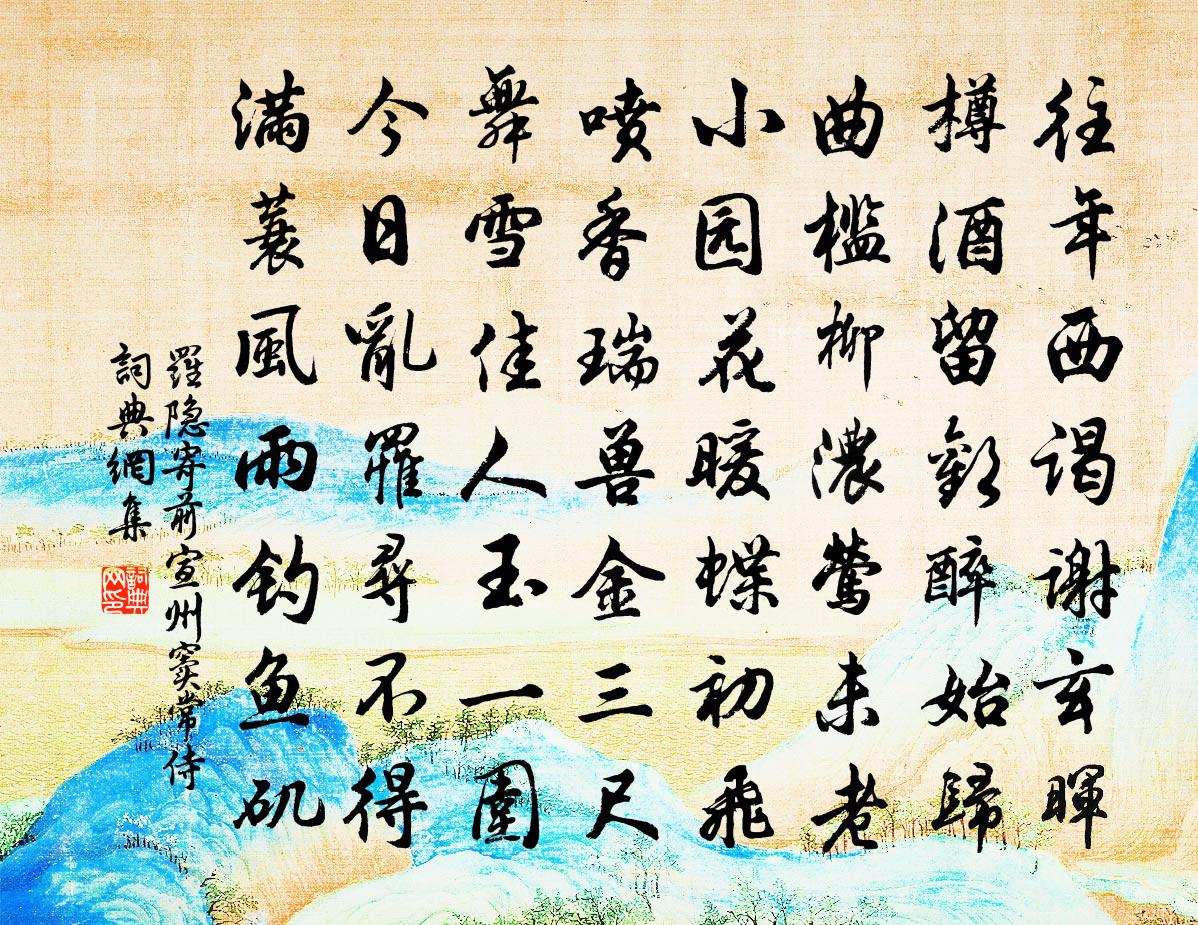 往年西谒谢玄暉
樽酒留歡醉始歸
曲槛柳濃鶯未老
小园花暖蝶初飛
喷香瑞兽金三尺
舞雪佳人玉一圍
今日亂罹尋不得
满蓑風雨钓鱼矶
羅隐寄前宣州窦常侍
詞典網集
詞典网印